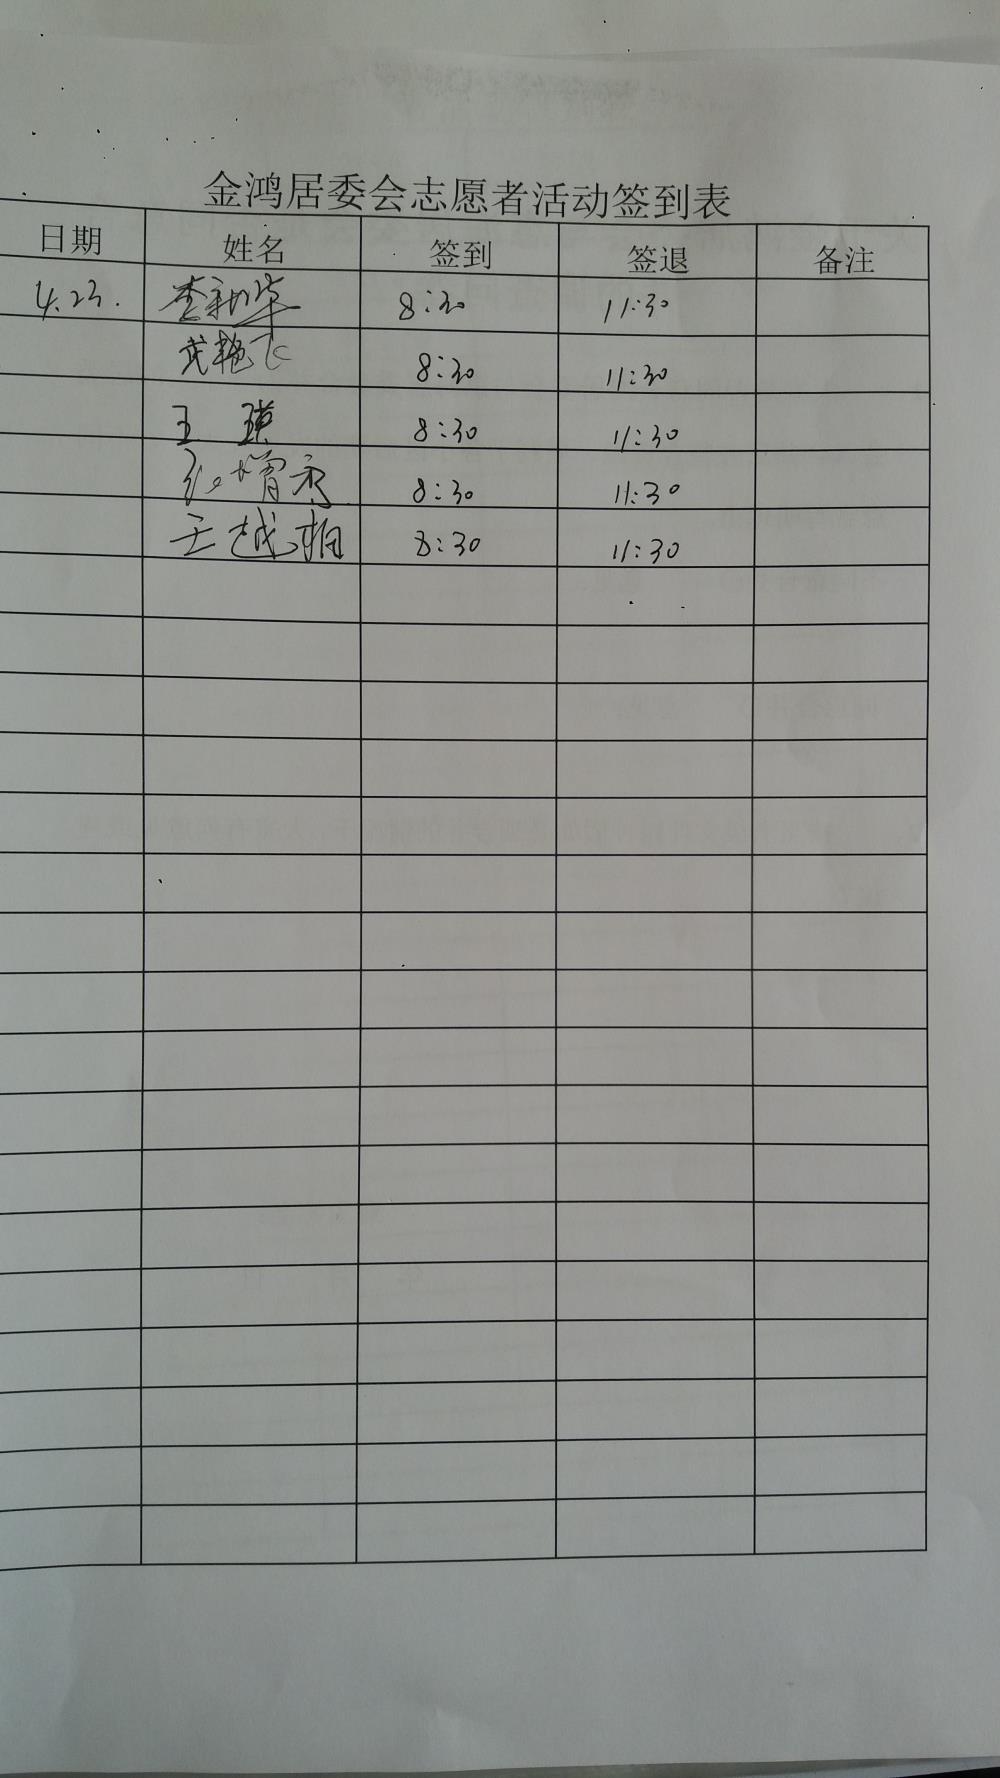 金鸿居委会志愿者活动签到表
日期 姓名 签到 签退 备注
4.23. 李新华 8:30 11:30
武艳飞 8:30 11:30
王 瑛 8:30 11:30
红增秀 8:30 11:30
王越相 8:30 11:30